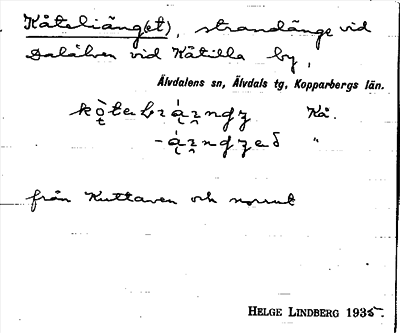 Kåteliäng(et), strandänge vid
Dalälven vid Kåtilla by,
Älvdalens sn, Älvdals tg, Kopparbergs län.
Kå.
"
från Kuttaven och norrut
HELGE LINDBERG 1935.